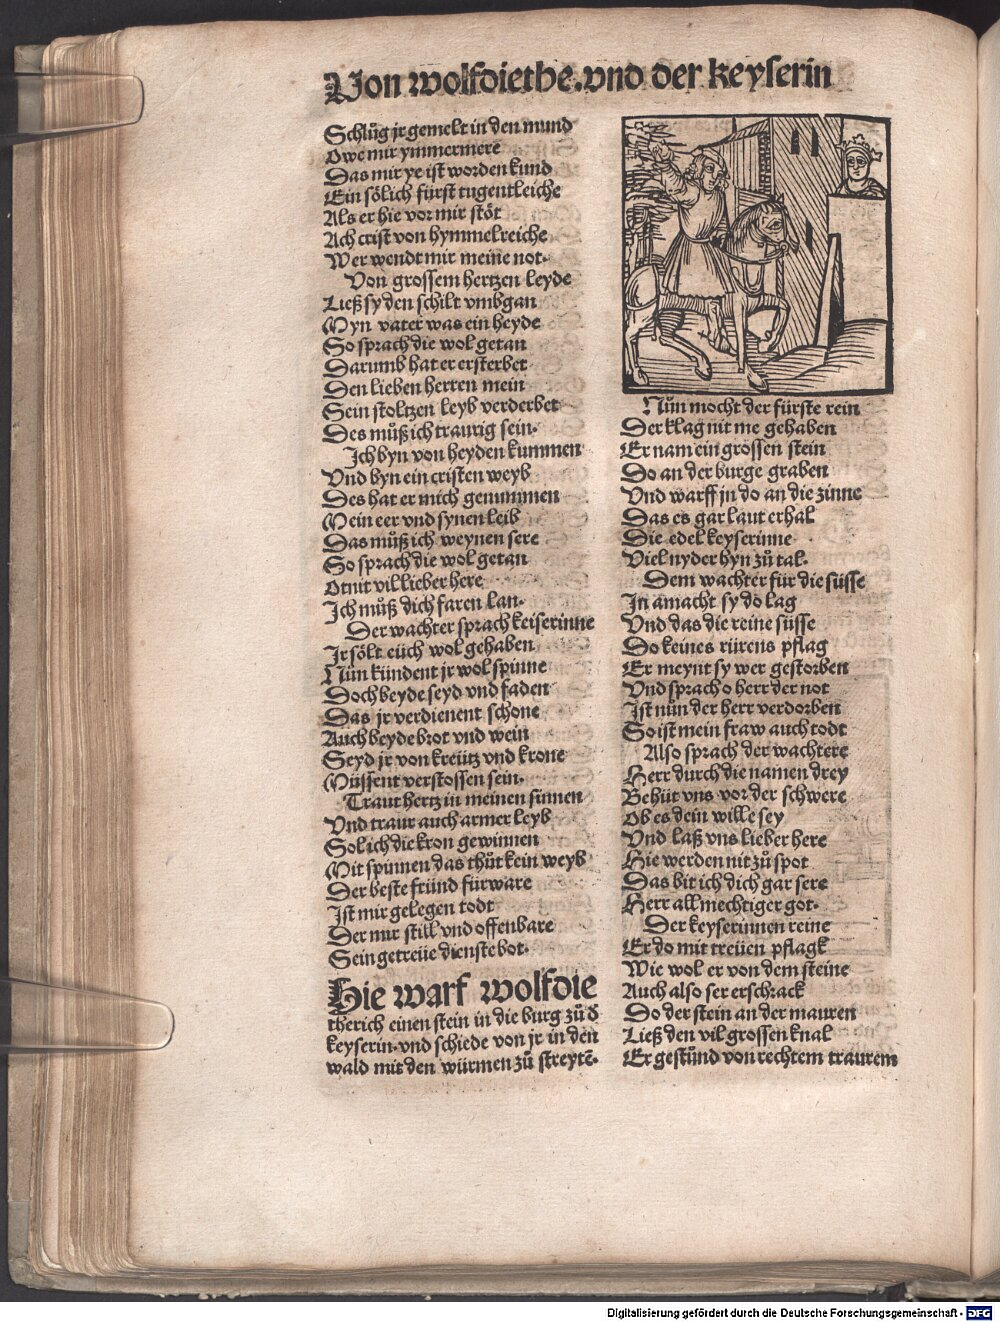 Von wolfdiethe. vnd der keyserin
Schlůg jr gemelt in den mund
Owe mir ymmermerē
Das mir ye ist worden kund
Ein sölich fürst tugentleiche
Als er hie vor mir stöt
Ach crist von hymmelreiche
Wer wendt mir meine not·
Von grossem hertzen leyde
Ließ sy den schilt vmbgan
Myn vater was ein heyde
So sprach die wol getan
Darumb hat er ersterbet
Den lieben herren mein
Sein stoltzen leyb verderbet
Des můß ich traurig sein·
Ich byn von heyden kummen
Vnd byn ein cristen weyb
Des hat er mich genummen
Mein eer vnd synen leib
Das můß ich weynen sere
So sprach die wol getan
Otnit vil lieber here
Ich můß dich faren lan·
Der wachter sprach keiserinne
Ir sölt eüch wol gehaben
Nůn kündent jr wol spinne
Doch beyde seyd vnd faden
Das jr verdienent schone
Auch beyde brot vnd wein
Seyd jr von kreütz vnd krone
Müssent verstossen sein·
Traut hertz in meinen sinnen
Vnd traur auch armer leyb
Sol ich die kron gewinnen
Mit spinnen das thůt kein weyb
Der beste fründ fürware
Ist mir gelegen todt
Der mir still vnd offenbare
Sein getreüe dienste bot·
Hie warf wolfdie
therich einen stein in die burg zů d̄
keyserin· vnd schiede von jr in den
wald mit den würmen zů streytē·
Nůn mocht der fürste rein
Der klag nit me gehaben
Er nam ein grossen stein
Do an der burge graben
Vnd warff jn do an die zinne
Das es gar laut erhal
Die edel keyserinne
Viel nyder hyn zů tal·
Dem wachter für die füsse
In amacht sy do lag
Vnd das die reine süsse
Do keines rürens pflag
Er meynt sy wer gestorben
Vnd sprach o herr der not
Ist nůn der herr verdorben
So ist mein fraw auch todt
Also sprach der wachtere
Herr durch die namen drey
Behüt vns vor der schwere
Ob es dein wille sey
Vnd laß vns lieber here
Hie werden nit zů spot
Das bit ich dich gar sere
Herr allmechtiger got·
Der keyserinnen reine
Er do mit treüen pflagk
Wie wol er von dem steine
Auch also ser erschrack
Do der stein an der mauren
Ließ den vil grossen knal
Er gestůnd von rechtem traurem
Digitalisierung gefördert durch die Deutsche Forschungsgemeinschaft - DFG